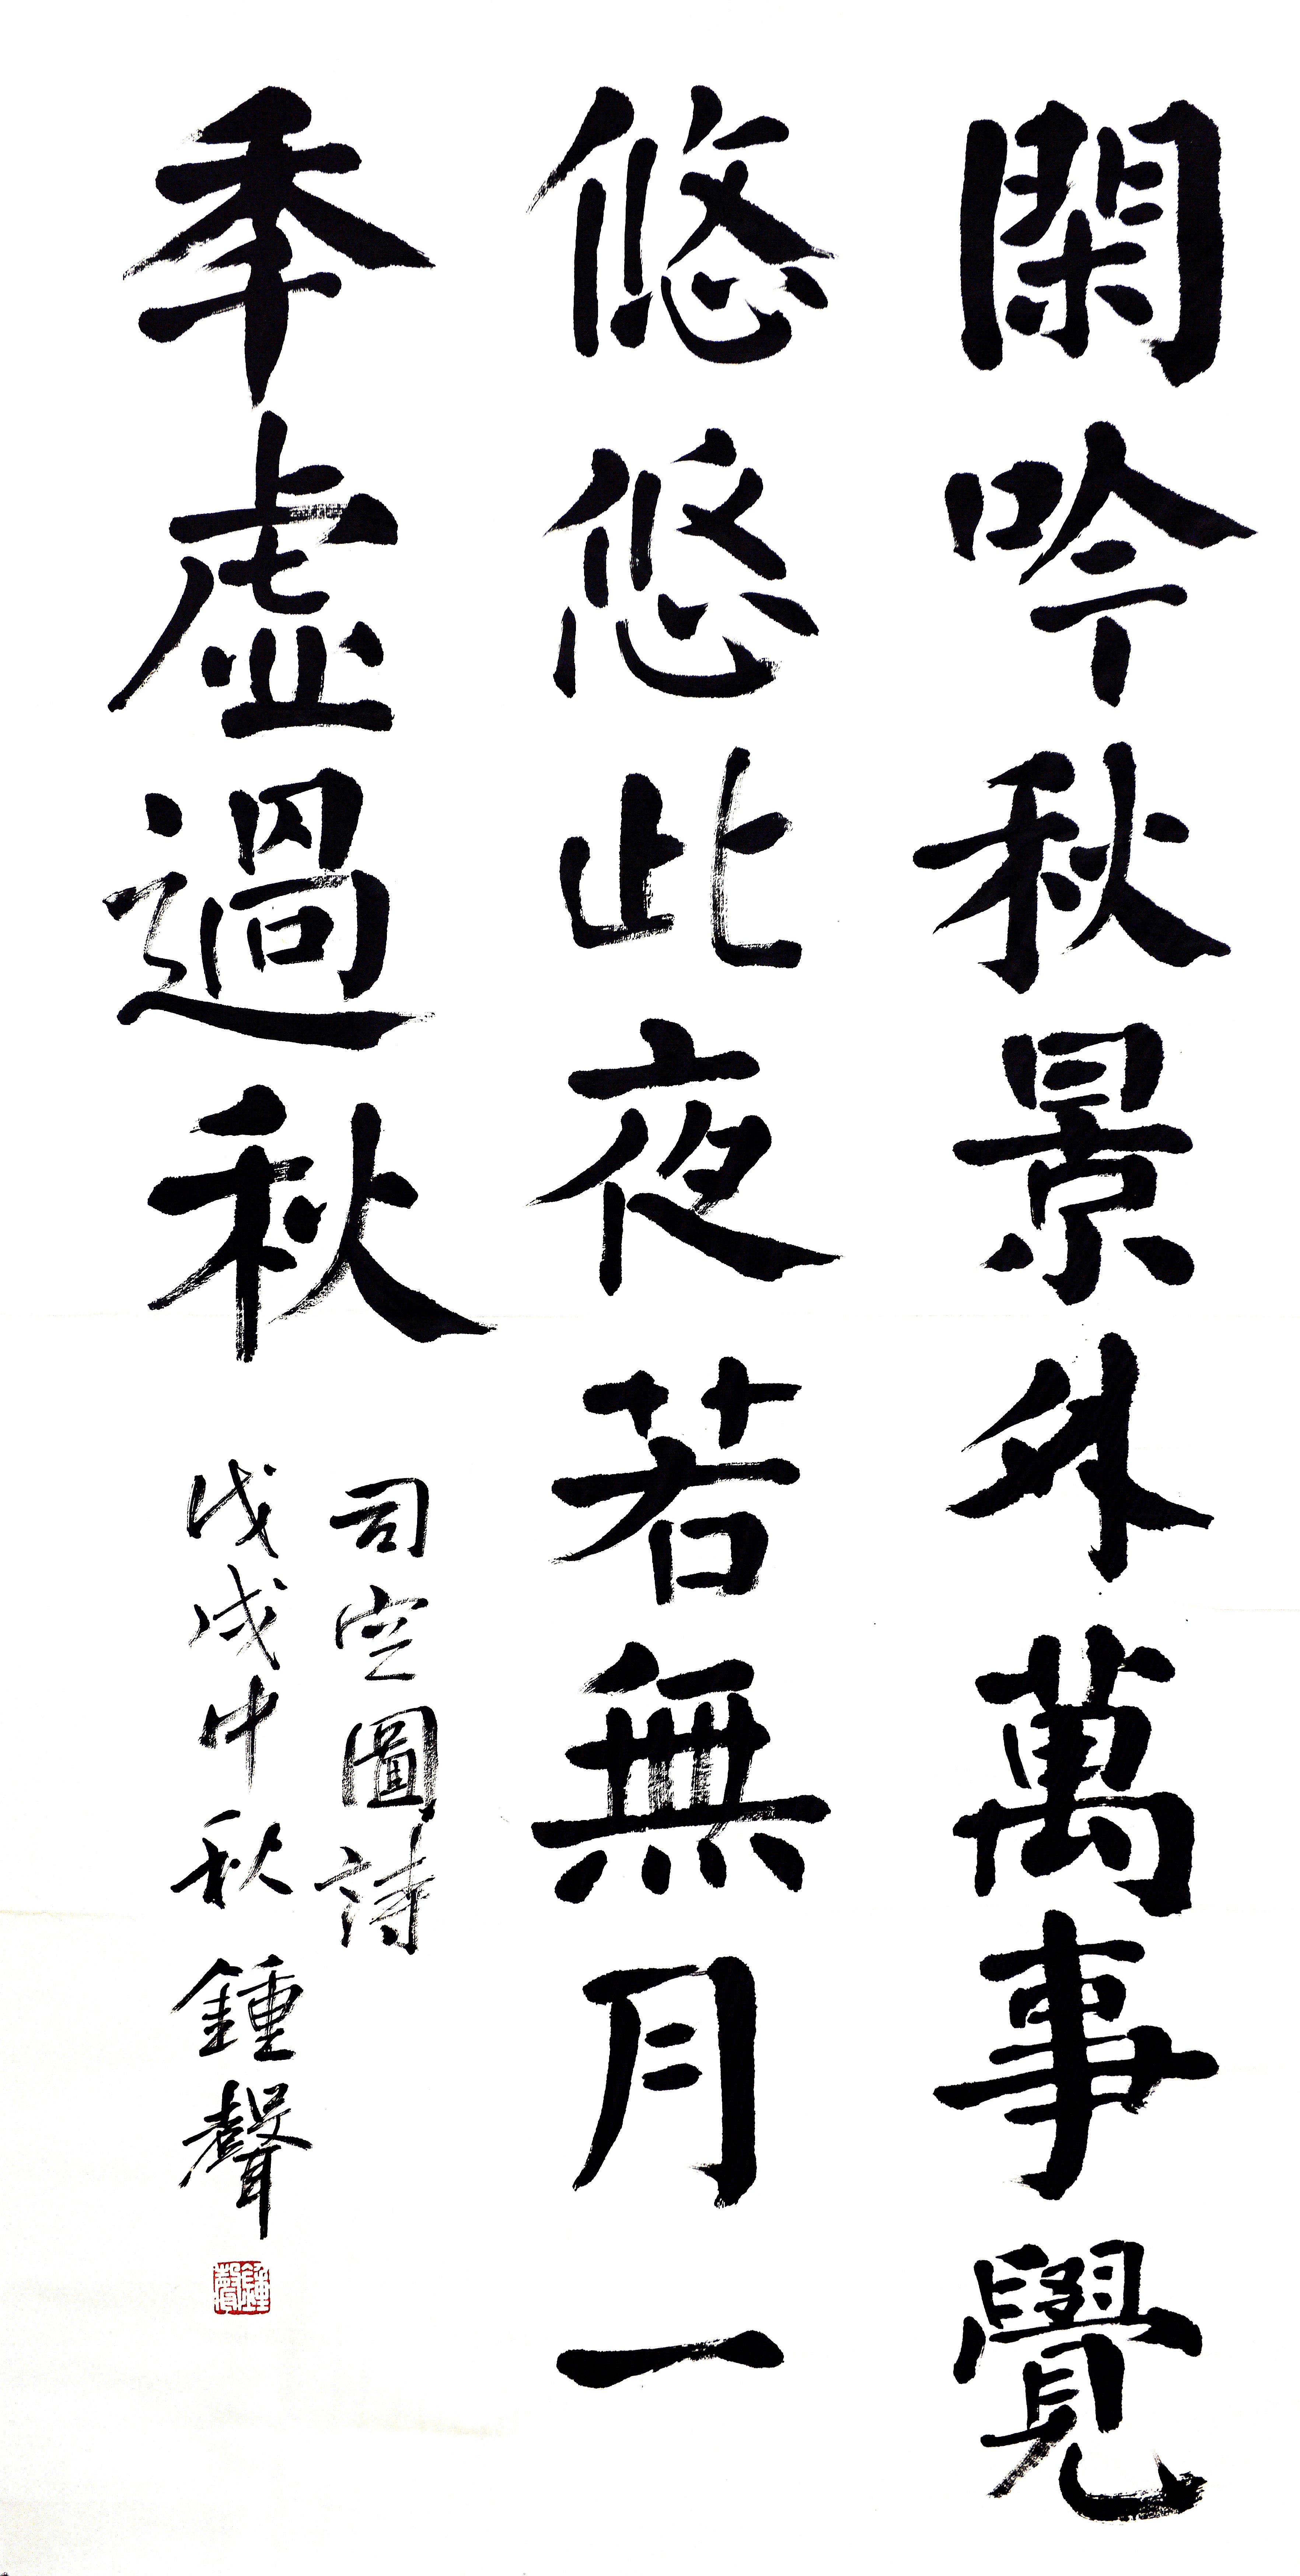 閑吟秋景外萬事覺
悠悠此夜若無月一
秊虛過秋
司空圖詩
戊戌中秋 鍾聲
鍾聲